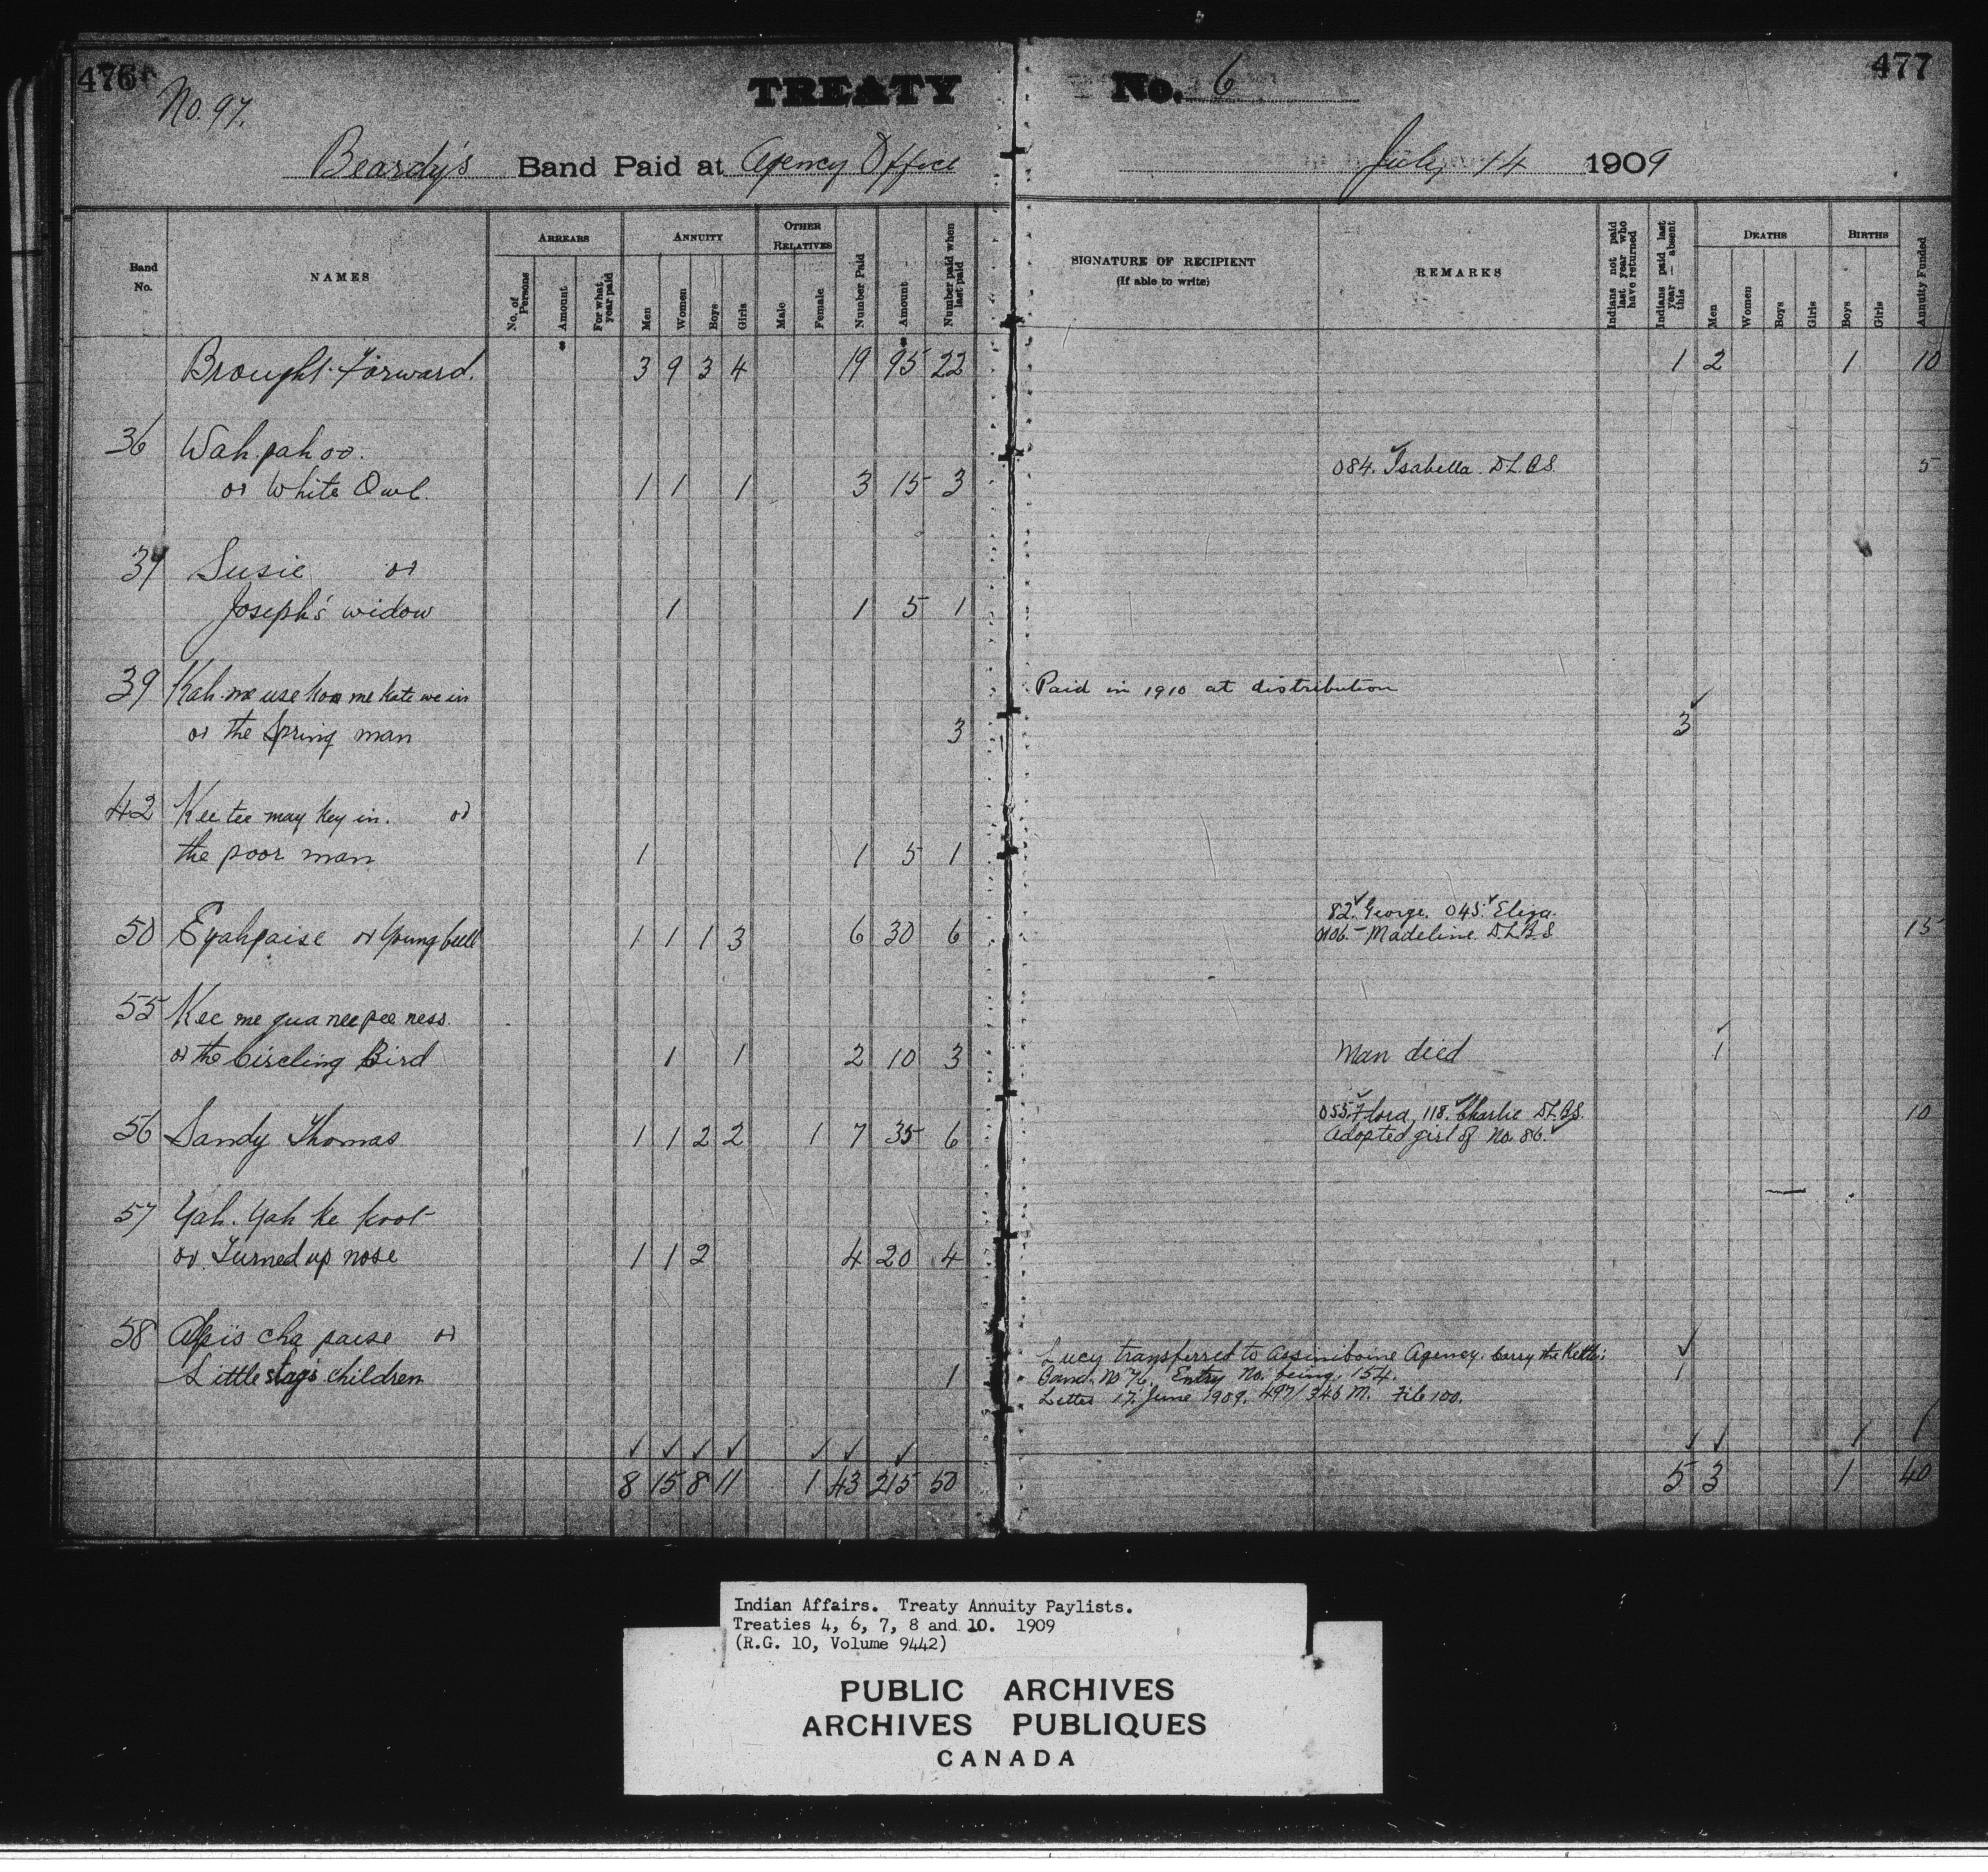 476
477
TREATY No. 6
No. 97.
Beardy's Band Paid at Agency Office July 14 1909
Band No. NAMES ARREARS ANNUITY OTHER RELATIVES Number Paid Amount Number paid when last paid SIGNATURE OF RECIPIENT (If able to write) REMARKS Indians not paid last year who have returned Indians paid last year — absent this DEATHS BIRTHS Annuity Funded
No. of Persons Amount For what year paid Men Women Boys Girls Male Female Men Women Boys Girls Boys Girls
Brought forward. 3 9 3 4 19 95 22 1 2 1 10
36 Wah pah oo.
or White Owl. 1 1 1 3 15 3 084. Isabella. D.L.B.S. 5
37 Susie or
Joseph's widow 1 1 5 1
39 Kah me use koo me kate we in Paid in 1910 at distribution
or the Spring man 3 3
42 Kee tee may key in. or
the poor man 1 1 5 1
82. George. 045. Eliza.
50 Eyahpaise or Young bull 1 1 1 3 6 30 6 0106. Madeline. D.L.B.S. 15
55 Kee me qua nee pee ness.
or the Circling Bird 1 1 2 10 3 Man died 1
055. Flora, 118. Charlie D.L.B.S. 10
56 Sandy Thomas 1 1 2 2 1 7 35 6 Adopted girl of No. 86.
57 Yah. Yah ke koot
or Turned up nose 1 1 2 4 20 4
58 Apis cha paise or Lucy transferred to Assiniboine Agency. Carry the Kettle's
Little stag's children 1 Band. No 76. Entry No. being. 154. 1
Letter 17. June 1909. 497/346 M. File 100.
8 15 8 11 1 43 215 50 5 3 1 40
Indian Affairs. Treaty Annuity Paylists.
Treaties 4, 6, 7, 8 and 10. 1909
(R.G. 10, Volume 9442)
PUBLIC ARCHIVES
ARCHIVES PUBLIQUES
CANADA